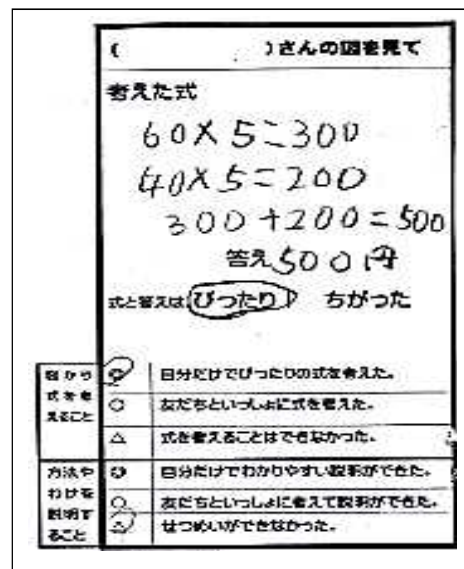 (　　　　)さんの図を見て
考えた式
60×5=300
40×5=200
300+200=500
答え500円
式と答えは ぴったり ちがった
図から式を考えること
◎ 自分だけでぴったりの式を考えた。
○ 友だちといっしょに式を考えた。
△ 式を考えることはできなかった。
方法やわけを説明すること
◎ 自分だけでわかりやすい説明ができた。
○ 友だちといっしょに考えて説明ができた。
△ せつめいができなかった。